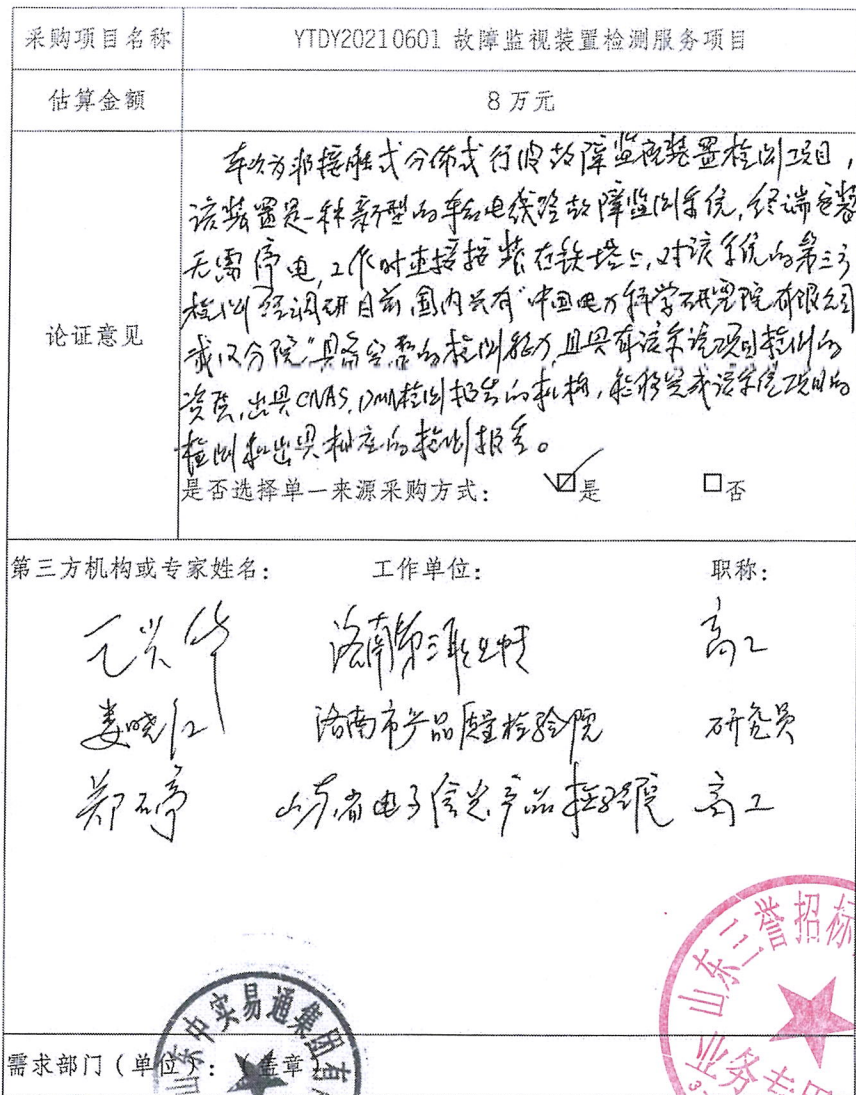 采购项目名称 YTDY20210601 故障监视装置检测服务项目
估算金额 8万元
本次为非接触式分布式行波故障监视装置检测项目，
该装置是一种新型的输电线路故障监测系统，终端安装
无需停电，工作时直接安装在铁塔上，对该系统的第三方
检测经调研目前，国内只有“中国电力科学研究院有限公司
论证意见
武汉分院”具备完整的检测能力，且具有该系统项目检测的
资质，出具CNAS、CMA检测报告的机构，能够完成该系统项目的
检测和出具相应的检测报告。
是否选择单一来源采购方式： ☑是 □否
第三方机构或专家姓名： 工作单位： 职称：
华 高工
娄晓红 济南市产品质量检验院 研究员
郑婷 山东省电子信息产品检验院 高工
山东三誉招标
业务专用
山东中实易通集团有
需求部门（单位）：（盖章）